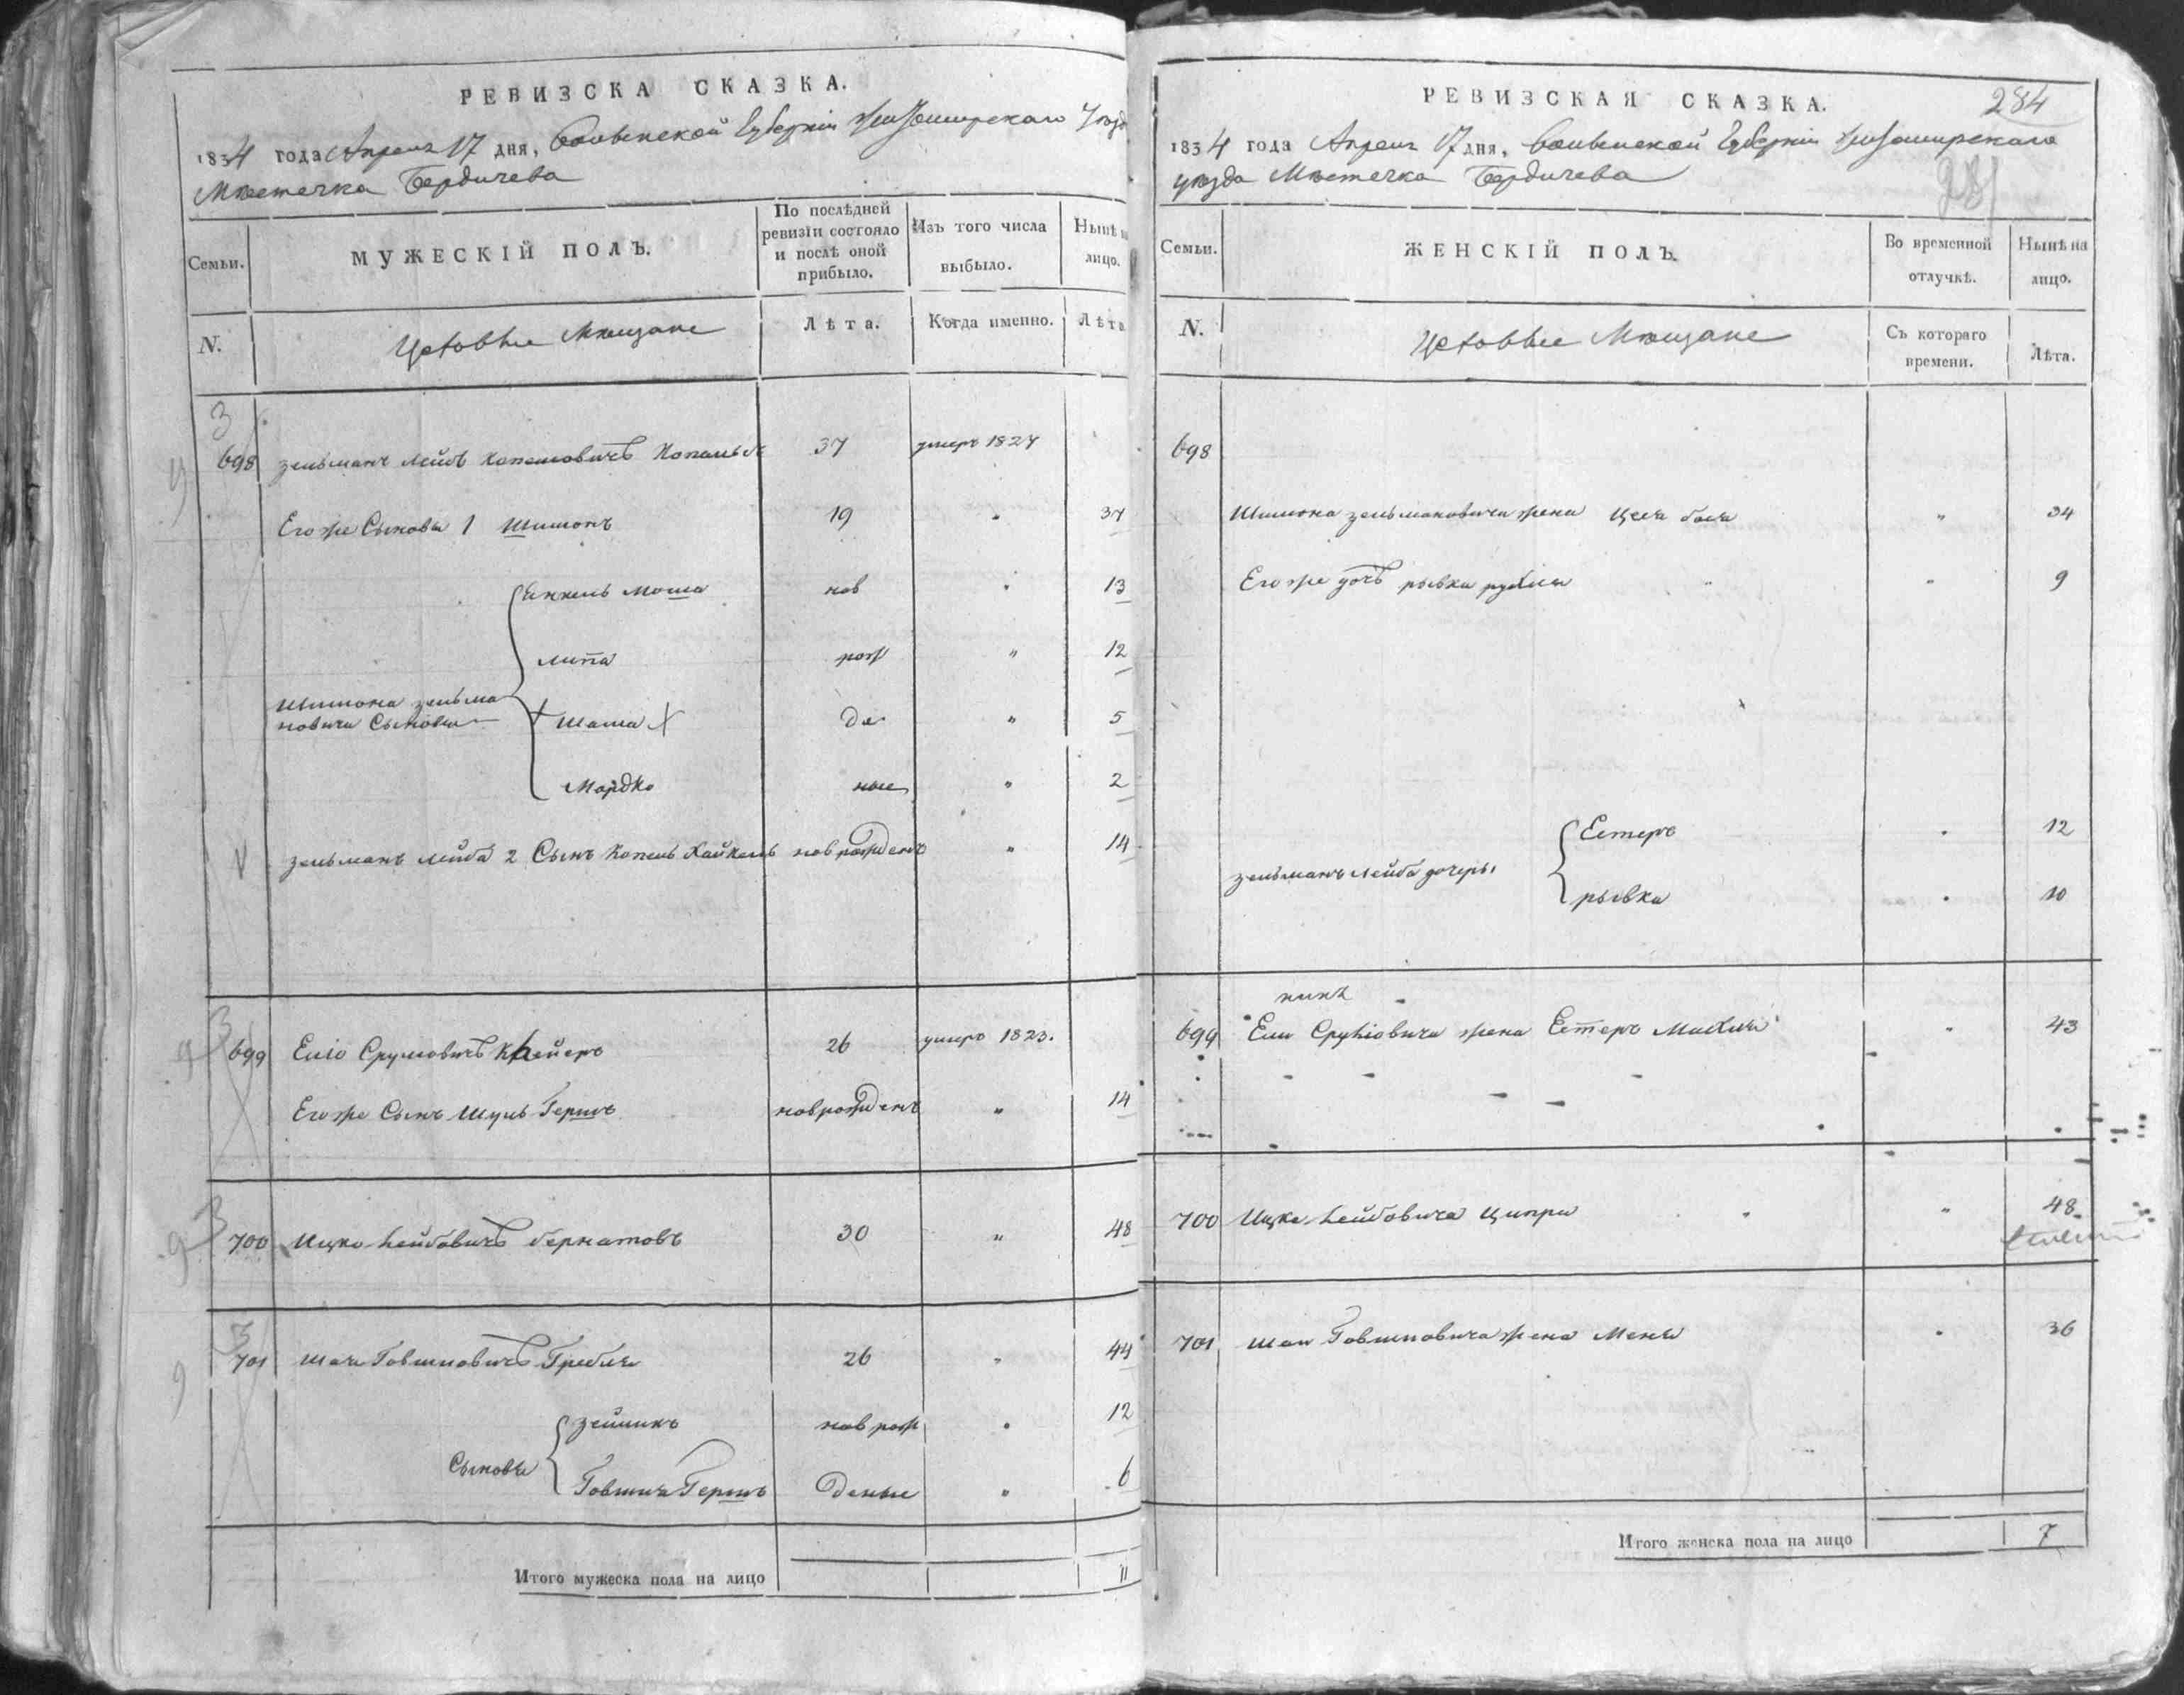 РЕВИЗСКА СКАЗКА.
1834 года Апреля 17 дня, Волынской Губернии Житомирского Уезда
Местечка Бердичева
Семьи.
МУЖЕСКІЙ ПОЛЪ.
По послѣдней ревизіи состояло и послѣ оной прибыло.
Изъ того числа выбыло.
Нынѣ на лицо.
N.
Мещане
Лѣта.
Когда именно.
Лѣта
698 зельманъ Лейбъ Копелевичъ 37 умеръ 1827
Его же Сыновья 1 Шимонъ 19 " 37
Янкель Моша нов " 13
Липа рож " 12
Шимона зельма
новича Сыновья Шама де " 5
Мордко ные " 2
зельманъ Лейба 2 Сынъ Копель Хайкель новрожденъ " 14
699 Елїо Срулиовичъ 26 умеръ 1823.
Его же Сынъ Шуль Гершъ новрожденъ " 14
700 Ицко Лейбовичъ бернатовъ 30 " 48
701 Шая Говшиовичъ 26 " 44
зейликъ нов рож " 12
Сыновья
Говшия Гершъ денные " 6
Итого мужеска пола на лицо 11
РЕВИЗСКАЯ СКАЗКА.
284
1834 года Апреля 17 дня, Волынской Губернии Житомирского
уезда Местечка Бердичева
281
Семьи.
ЖЕНСКІЙ ПОЛЪ.
Во временной отлучкѣ.
Нынѣ на лицо.
N.
Мещане
Съ котораго времени.
Лѣта.
698
Шимона зельмановича жена бася " 34
Его же дочь рывка " 9
Естеръ " 12
зельманъ Лейба дочеры
рывка " 10
699 Ели Срулиовича жена Естеръ " 43
700 Ицка Лейбовича Ципра " 48
701 Шаи Говшиовича жена Меня " 36
Итого женска пола на лицо 7